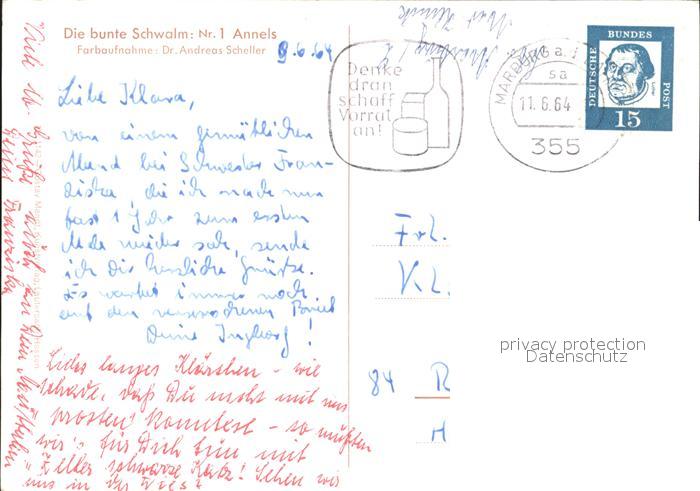 Die bunte Schwalm: Nr. 1 Annels
Farbaufnahme: Dr. Andreas Scheller
9.6.64
Liebe Klara,
von einem gemütlichen
Abend bei Schwester Fran-
ziska, die ich nach nun
fast 1 Jahr zum ersten
Male wieder sah, sende
ich Dir herzliche Grüße.
Es wartet immer noch
auf den versprochenen Brief
Deine Ingeborg!
Liebes langes Klärchen - wie
schade, daß Du nicht mit uns
prosten konntest - so mußten
wir für Dich tun mit
"Zeller schwarze Katz! Sehen wir
uns in der
Grüße
Franziska
Denke
dran
schaff
Vorrat
an!
MARBURG
sa
11.6.64
355
DEUTSCHE
BUNDES
POST
15
Frl.
Kl.
84 R
H
privacy protection
Datenschutz